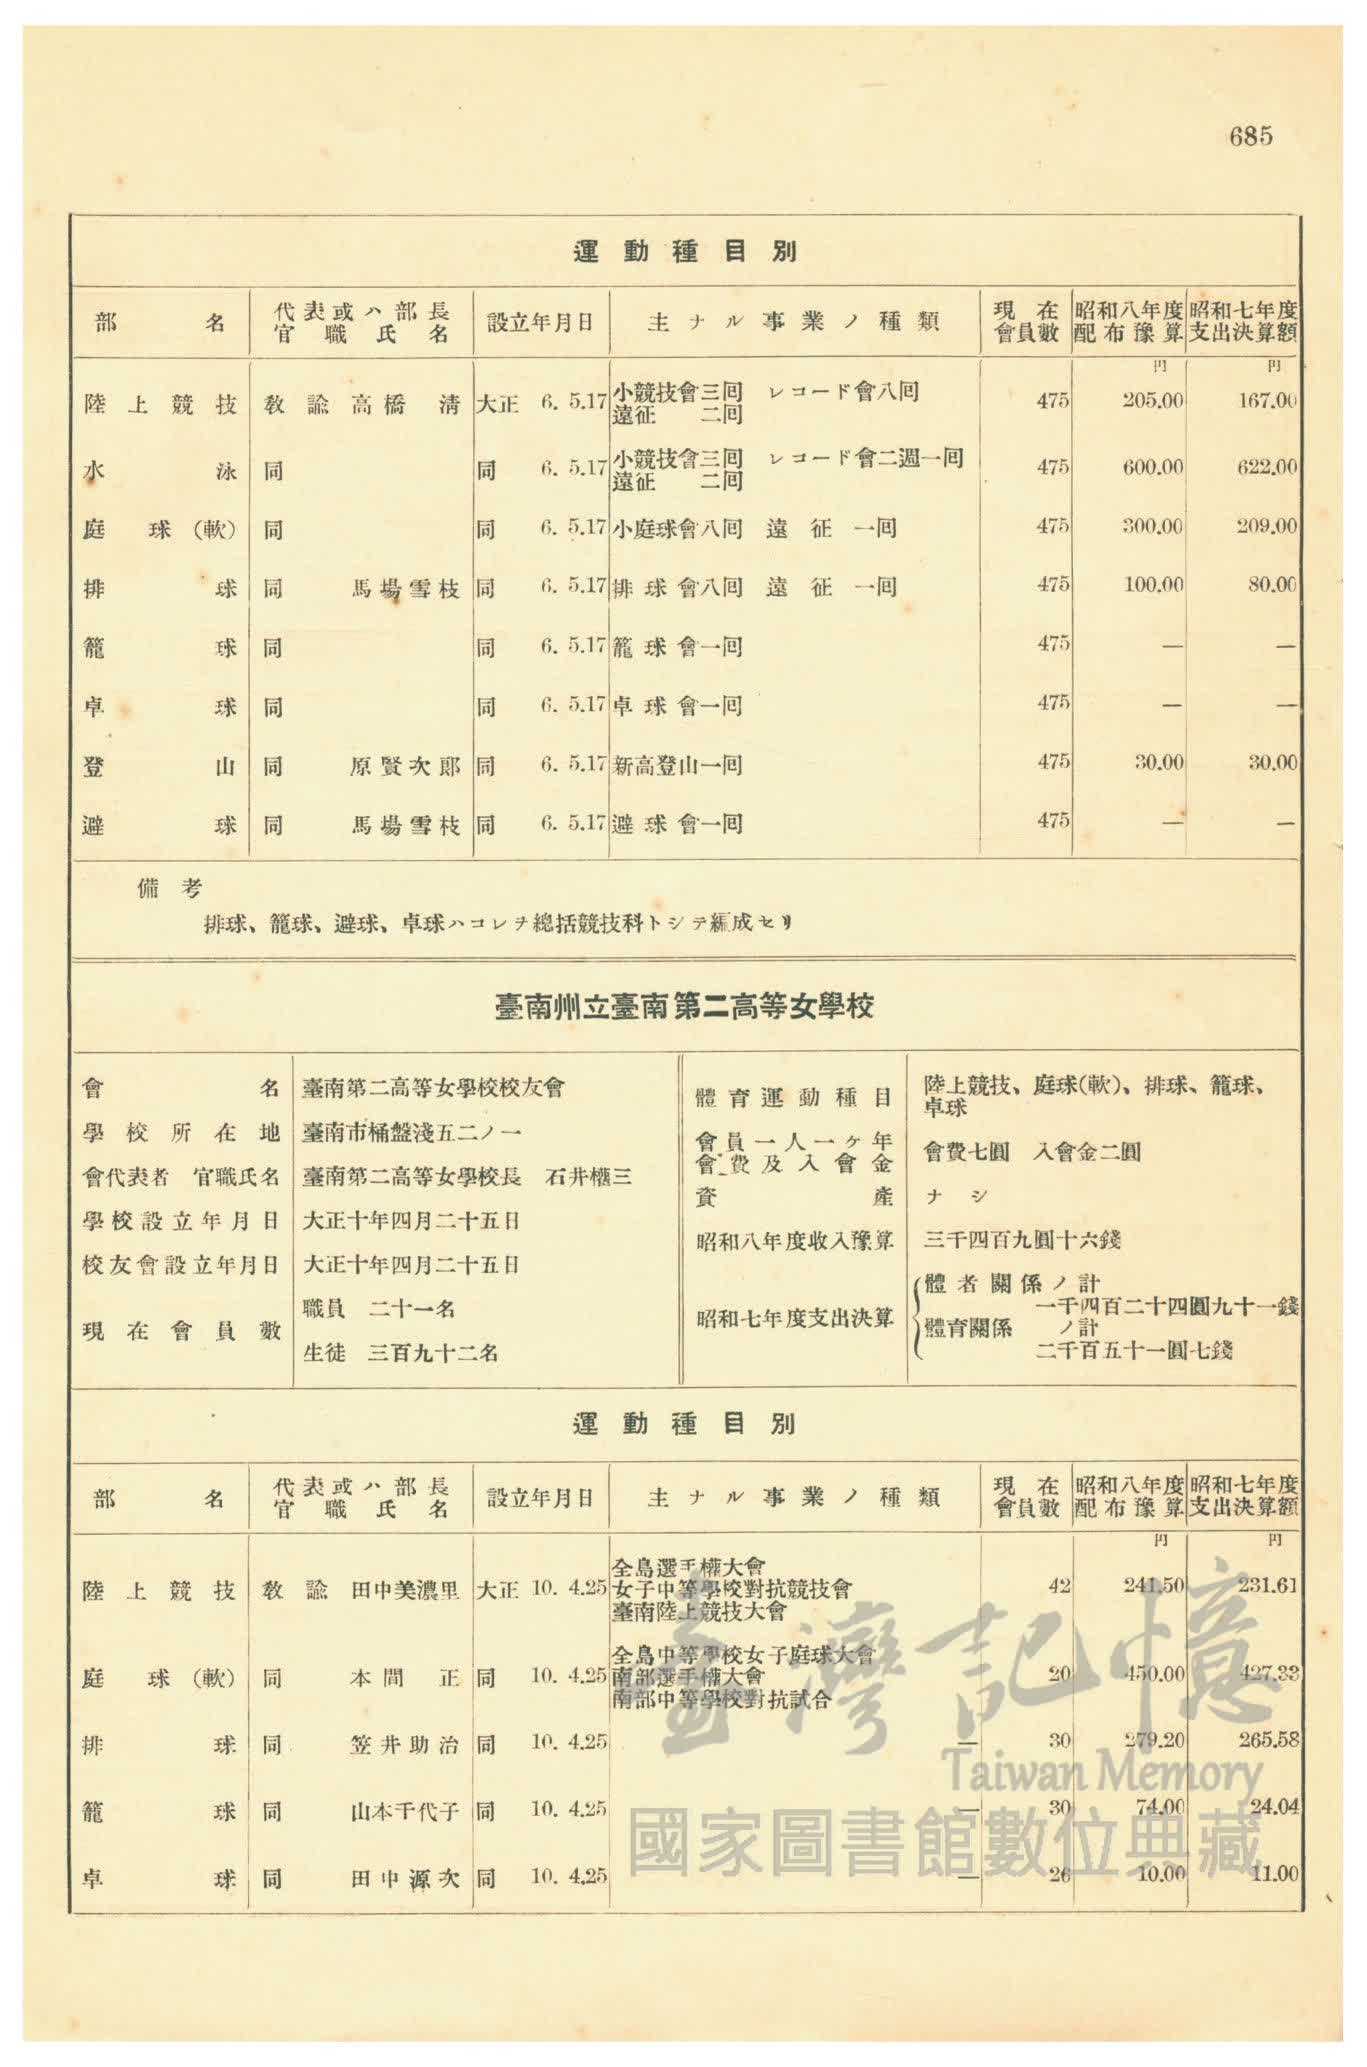 685
運動種目別
部名 代表或ハ部長官職氏名 設立年月日 主ナル事業ノ種類 現在會員數 昭和八年度配布豫算 昭和七年度支出決算額
円 円
陸上競技 教諭 高橋清 大正 6. 5.17 小競技會三囘 レコード會八囘 475 205.00 167.00
遠征 二囘
水泳 同 同 6. 5.17 小競技會三囘 レコード會二週一囘 475 600.00 622.00
遠征 二囘
庭球(軟) 同 同 6. 5.17 小庭球會八囘 遠征 一囘 475 300.00 209.00
排球 同 馬場雪枝 同 6. 5.17 排球會八囘 遠征 一囘 475 100.00 80.00
籠球 同 同 6. 5.17 籠球會一囘 475 — —
卓球 同 同 6. 5.17 卓球會一囘 475 — —
登山 同 原賢次郞 同 6. 5.17 新高登山一囘 475 30.00 30.00
避球 同 馬場雪枝 同 6. 5.17 避球會一囘 475 — —
備考
排球、籠球、避球、卓球ハコレヲ總括競技科トシテ編成セリ
臺南州立臺南第二高等女學校
會名 臺南第二高等女學校校友會
學校所在地 臺南市桶盤淺五二ノ一
會代表者 官職氏名 臺南第二高等女學校長 石井權三
學校設立年月日 大正十年四月二十五日
校友會設立年月日 大正十年四月二十五日
現在會員數 職員 二十一名
生徒 三百九十二名
體育運動種目 陸上競技、庭球(軟)、排球、籠球、
卓球
會員一人一ヶ年
會費及入會金 會費七圓 入會金二圓
資產 ナシ
昭和八年度收入豫算 三千四百九圓十六錢
昭和七年度支出決算 體者關係ノ計
一千四百二十四圓九十一錢
體育關係 ノ計
二千百五十一圓七錢
運動種目別
部名 代表或ハ部長官職氏名 設立年月日 主ナル事業ノ種類 現在會員數 昭和八年度配布豫算 昭和七年度支出決算額
円 円
全島選手權大會
陸上競技 教諭 田中美濃里 大正 10. 4.25 女子中等學校對抗競技會 42 241.50 231.61
臺南陸上競技大會
全島中等學校女子庭球大會
庭球(軟) 同 本間正 同 10. 4.25 南部選手權大會 20 450.00 427.33
南部中等學校對抗試合
排球 同 笠井助治 同 10. 4.25 — 30 279.20 265.58
籠球 同 山本千代子 同 10. 4.25 — 30 74.00 24.04
卓球 同 田中源次 同 10. 4.25 — 26 10.00 11.00
臺灣記憶
Taiwan Memory
國家圖書館數位典藏